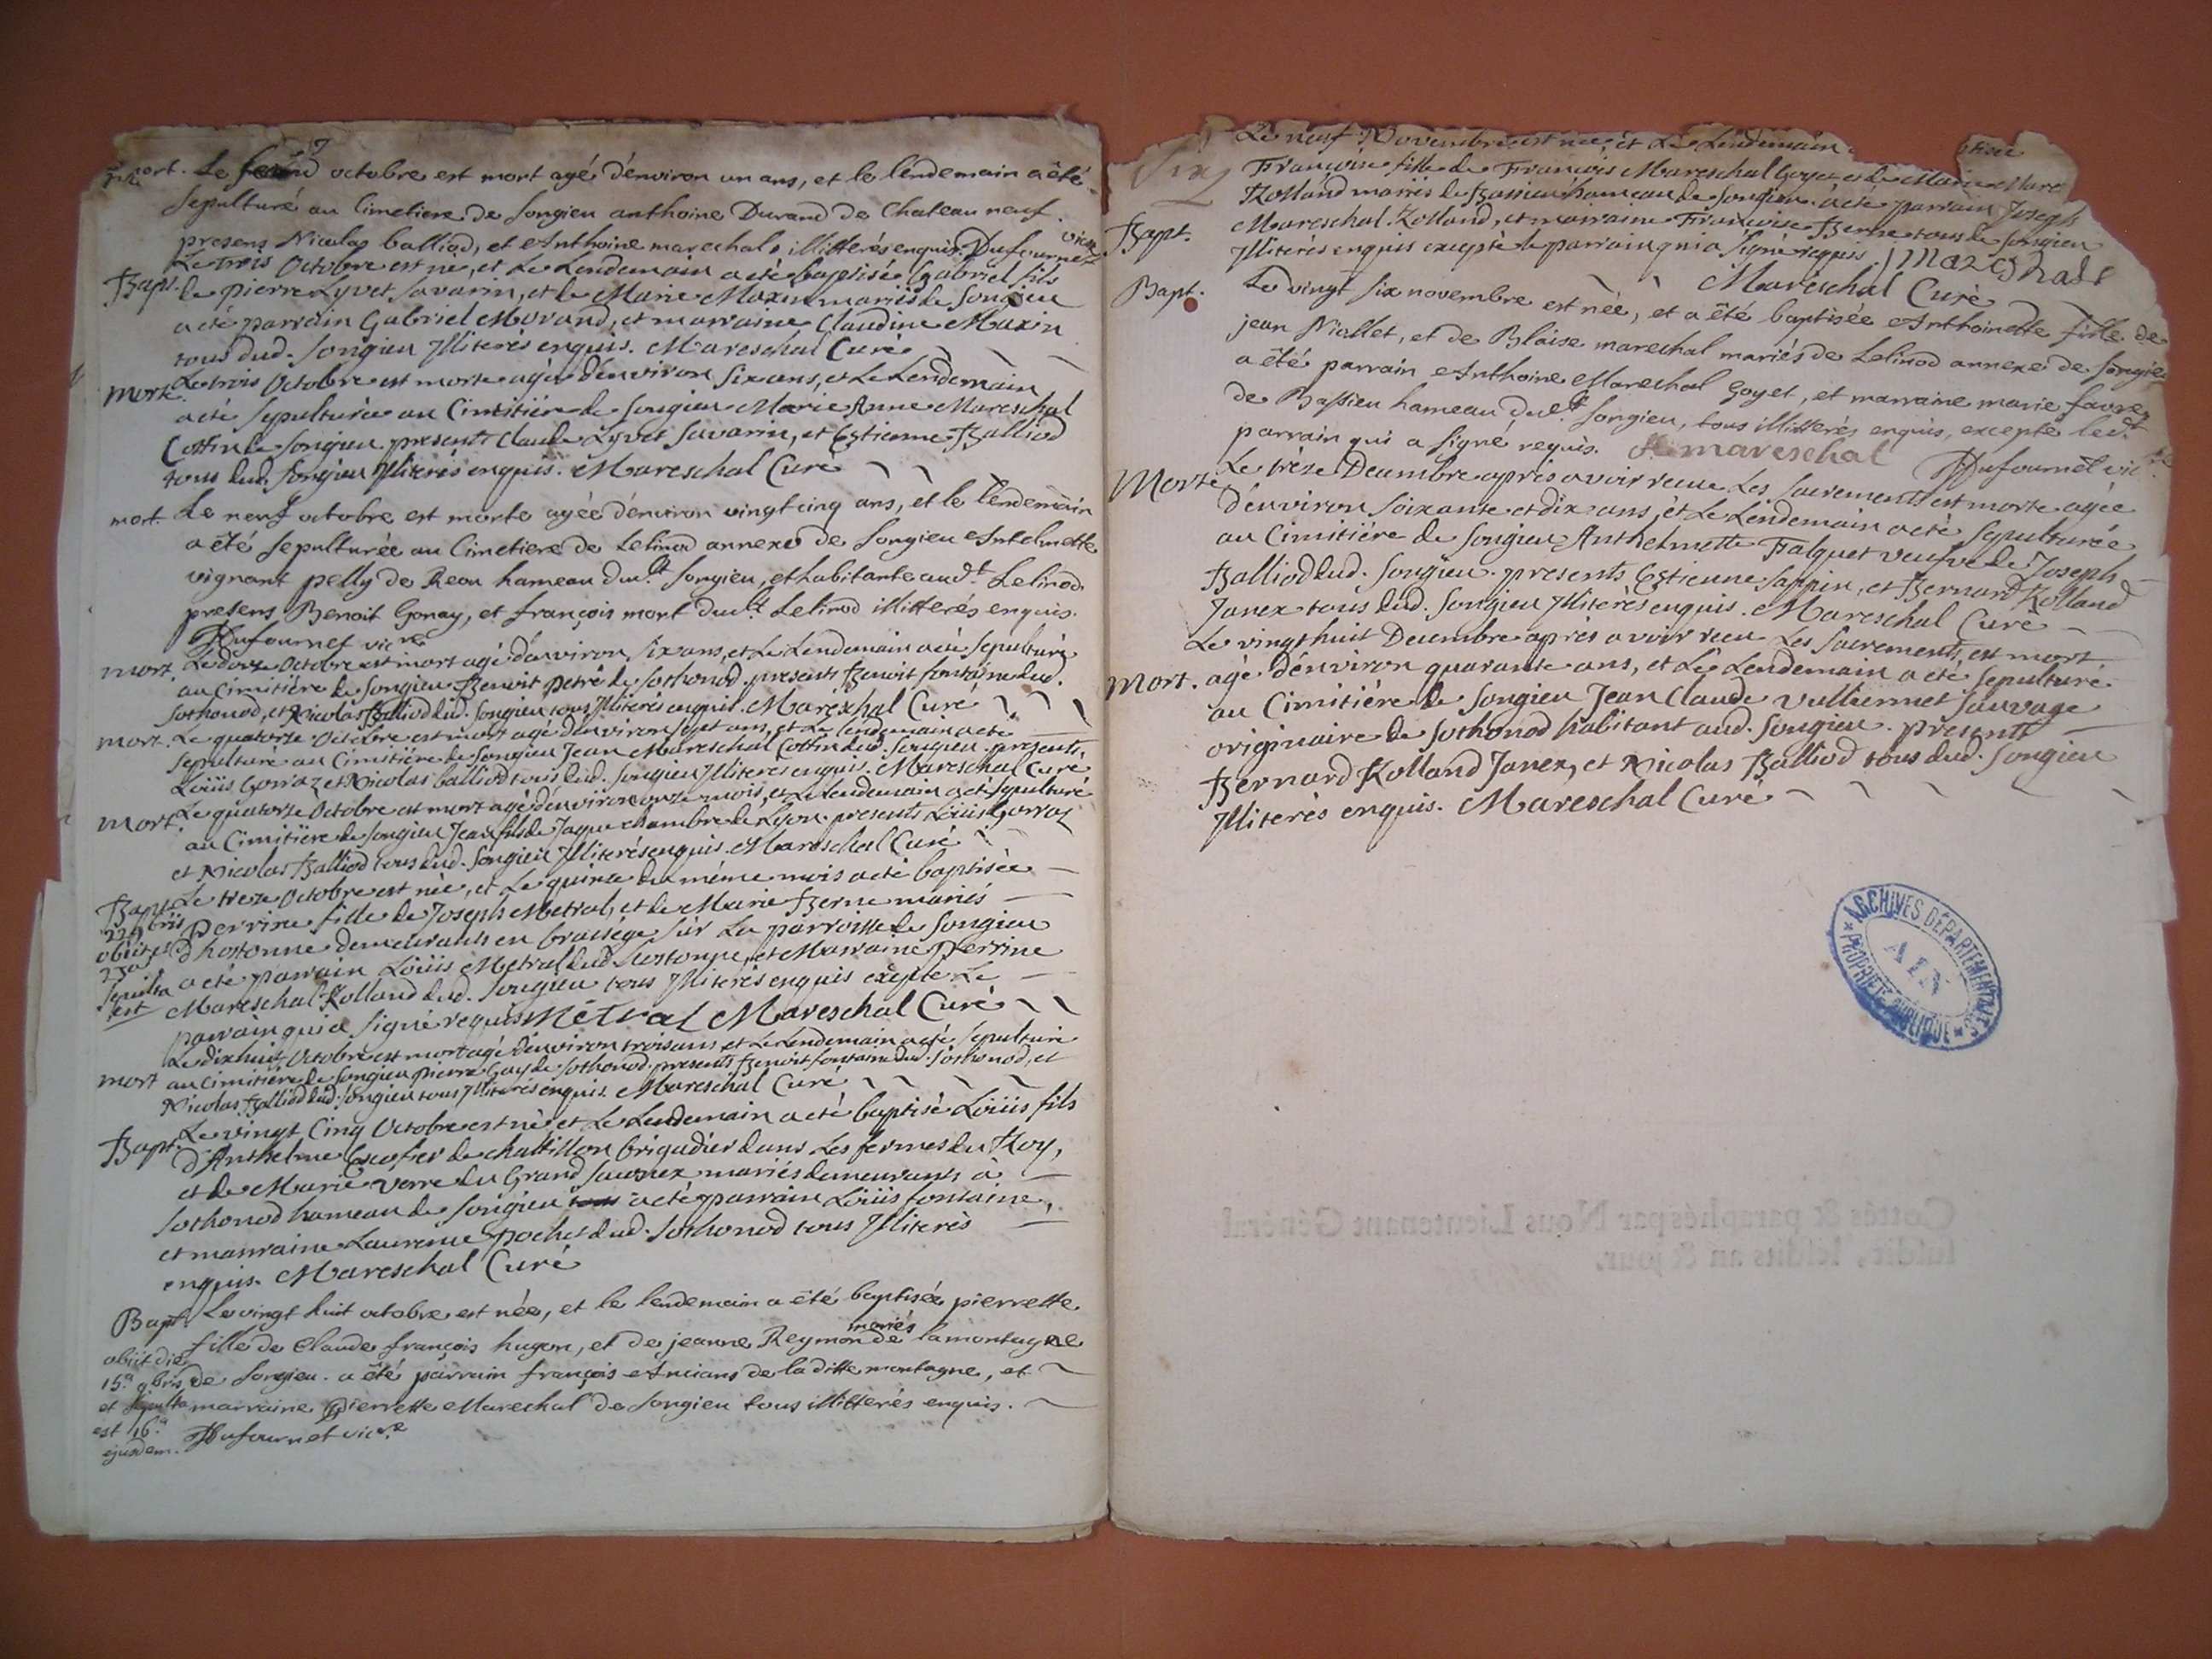 mort. Le second octobre est mort agé d'environ un ans, et le lendemain a été
sepulturé au Cimetiere de songieu anthoine Durand de Chateau neuf.
presens Nicolas balliod, et Anthoine marechal, illitterés enquis. Dufournet vicre
Bapt. Le trois Octobre est né, et Le Lendemain a eté baptisé Gabriel fils
de pierre Lyvet Savarin, et de Marie Maxin mariés de songieu
a eté parrain Gabriel Morand, et marraine Claudine Maxin
tous dud. songieu Jlliterés enquis. Mareschal Curé
Morte. Le trois Octobre est morte agée denviron six ans, et Le Lendemain
a eté sepulturée au Cimitiére de songieu Marie Anne Mareschal
Cottin de songieu presents Claude Lyvet Savarin, et Estienne Balliod
tous dud. songieu Jlliterés enquis. Mareschal Curé
mort. Le neuf octobre est morte agée d'environ vingt cinq ans, et le lendemain
a été sepulturée au Cimetiere de Lelinod annexe de songieu Antelmette
vignant pelly de Reou hameau dudt songieu, et habitante audt Lelinod.
presens Benoit Gonay, et françois mort dudt Lelinod illitterés enquis.
Dufournet vicre
mort. Le doze Octobre est mort agé d'environ six ans, et Le Lendemain a eté sepulturé
au Cimitiére de songieu Benoit petré de sothonod. presents Benoit fontaine dud.
sothonod, et Nicolas Balliod dud. songieu tous Jlliterés enquis. Mareschal Curé
mort. Le quatorse Octobre est mort agé d'environ sept ans, et Le lendemain a eté
sepulturé au Cimitiére de songieu Jean Mareschal Cottin dud. songieu. presents,
Loüis Gorraz et Nicolas balliod tous dud. songieu Jlliterés enquis. Mareschal Curé
Mort. Le quatorse Octobre est mort agé d'environ onze mois, et Le Lendemain a eté sepulturé
au Cimitiére de songieu Jean fils de Jaque chambre de Lyon. presents Loüis Gorraz
et Nicolas Balliod tous dud. songieu Jlliterés enquis. Mareschal Curé
Bapt. Le treze Octobre est née, et Le quinze du même mois a eté baptisée
Perrine fille de Joseph Metral, et de Marie Berne mariés
d'hostonne demeurants en brassege sur La parroisse de songieu
a eté parrain Loüis Metral dud. hostonne, et Marraine Perrine
Mareschal Rolland dud. songieu tous Jlliterés enquis excepté Le
parrain qui a signé requis Métral Mareschal Curé
obiit
sepulta
est
mort Le dixhuit Octobre est mort agé d'environ trois ans et Le Lendemain a eté sepulturé
au Cimitiére de songieu pierre Gay de sothonod. presents Benoit fontaine dud. sothonod, et
Nicolas Balliod dud. songieu tous Jlliterés enquis. Mareschal Curé
Bapt. Le vingt Cinq Octobre est né et Le Lendemain a eté baptisé Loüis fils
d'Anthelme Escofier de chattillon brigadier dans Les fermes du Roy,
et de Marie verre du Grand sauonex mariés demeurants à
sothonod hameau de songieu a eté parrain Loüis fontaine,
et marraine Laurence pochet dud. sothonod tous Jlliterés
enquis. Mareschal Curé
Bapt. Le vingt huit octobre est née, et le lendemain a été baptisée pierrette
fille de Claude françois hugon, et de jeanne Reymond mariés de la montagne
de songieu. a été parrain françois Ancians de la ditte montagne, et
marraine pierrette Marechal de songieu tous illitterés enquis.
Dufournet vicre
obiit die
15a 9bris
et sepulta
est 16a
ejusdem.
Six
Le neuf Novembre est née, et Le Lendemain
Françoise fille de François Mareschal Goyet et de Marie Mare
Rolland mariés de Bassieu hameau de songieu. a eté parrain Joseph
Bapt. Mareschal Rolland, et marraine Françoise Berne tous de songieu
Jlliterés enquis excepté le parrain qui a signé requis. j mareshal
Mareschal Curé
Bapt. Le vingt six novembre est née, et a êté baptisée Anthoinette fille de
jean Niallet, et de Blaise marechal mariés de Lelinod annexe de songieu
a êté parrain Anthoine Marechal Goyet, et marraine marie favre
de Bassieu hameau dudt songieu, tous illitterés enquis, excepté ledt
parrain qui a signé requis. A mareschal Dufournet vicre
Morte Le tréze Decembre aprés avoir receu Les sacrements est morte agée
d'environ soixante et dix ans, et Le Lendemain a eté sepulturée
au Cimitiére de songieu Anthelmette Falquet veufve de Joseph
Balliod dud. songieu. presents Estienne sappin, et Bernard Rolland
Janex tous dud. songieu Jlliterés enquis. Mareschal Curé
Le vingthuit Decembre aprés avoir receu Les sacrements, est mort
Mort. agé d'environ quarante ans, et Le Lendemain a eté sepulturé
au Cimitiére de songieu Jean Claude vulliermet sauvage
originaire de sothonod habitant aud. songieu. presents
Bernard Rolland Janex, et Nicolas Balliod tous dud. songieu
Jlliterés enquis. Mareschal Curé
ARCHIVES DÉPARTEMENTALES
AIN
PROPRIÉTÉ PUBLIQUE
Cottés & paraphés par Nous Lieutenant Général
susdit, lesdits an & jour.